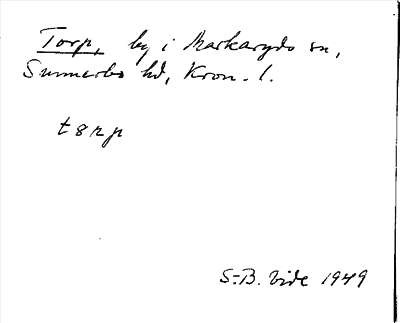 Torp, by i Markaryds sn,
Sunnerbo hd, Kron. l.
t8rp
S-B. Vide 1949